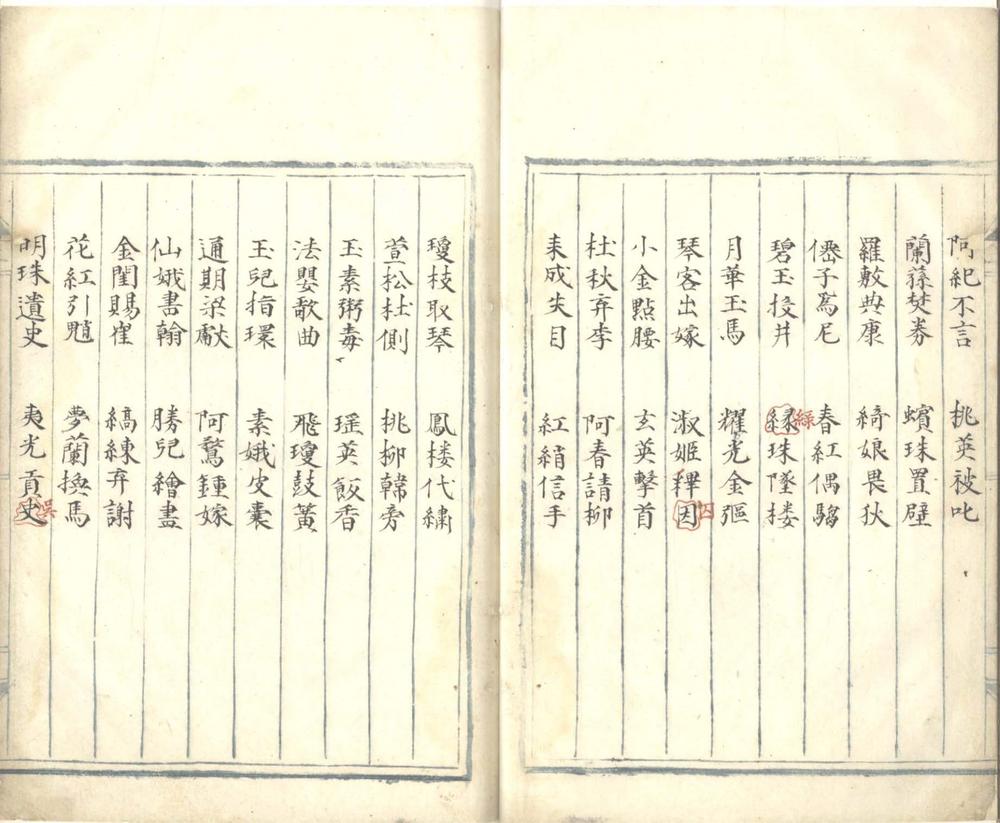 阿紀不言 桃英被叱
蘭蓀焚券 蠙珠置壁
羅敷典康 綺娘畏狄
僊子為尼 春紅偶騶
碧玉投井 縁珠墜楼 綠
月華玉馬 耀光金彄
琴客出嫁 淑姬釋因 囚
小金點腰 玄英擊首
杜秋弃李 阿春請柳
耒成失目 紅綃信手
瓊枝取琴 鳳楼代繡
萱松杜側 桃柳韓旁
玉素粥毒 瑶英飯香
法嬰歌曲 飛瓊鼓簧
玉児指環 素娥皮囊
通期梁獻 阿鶩鍾嫁
仙娥書翰 勝兒繪畫
金閨賜崔 縞練弃謝
花紅引 夢蘭換馬
明珠遺史 夷光貢史 吳